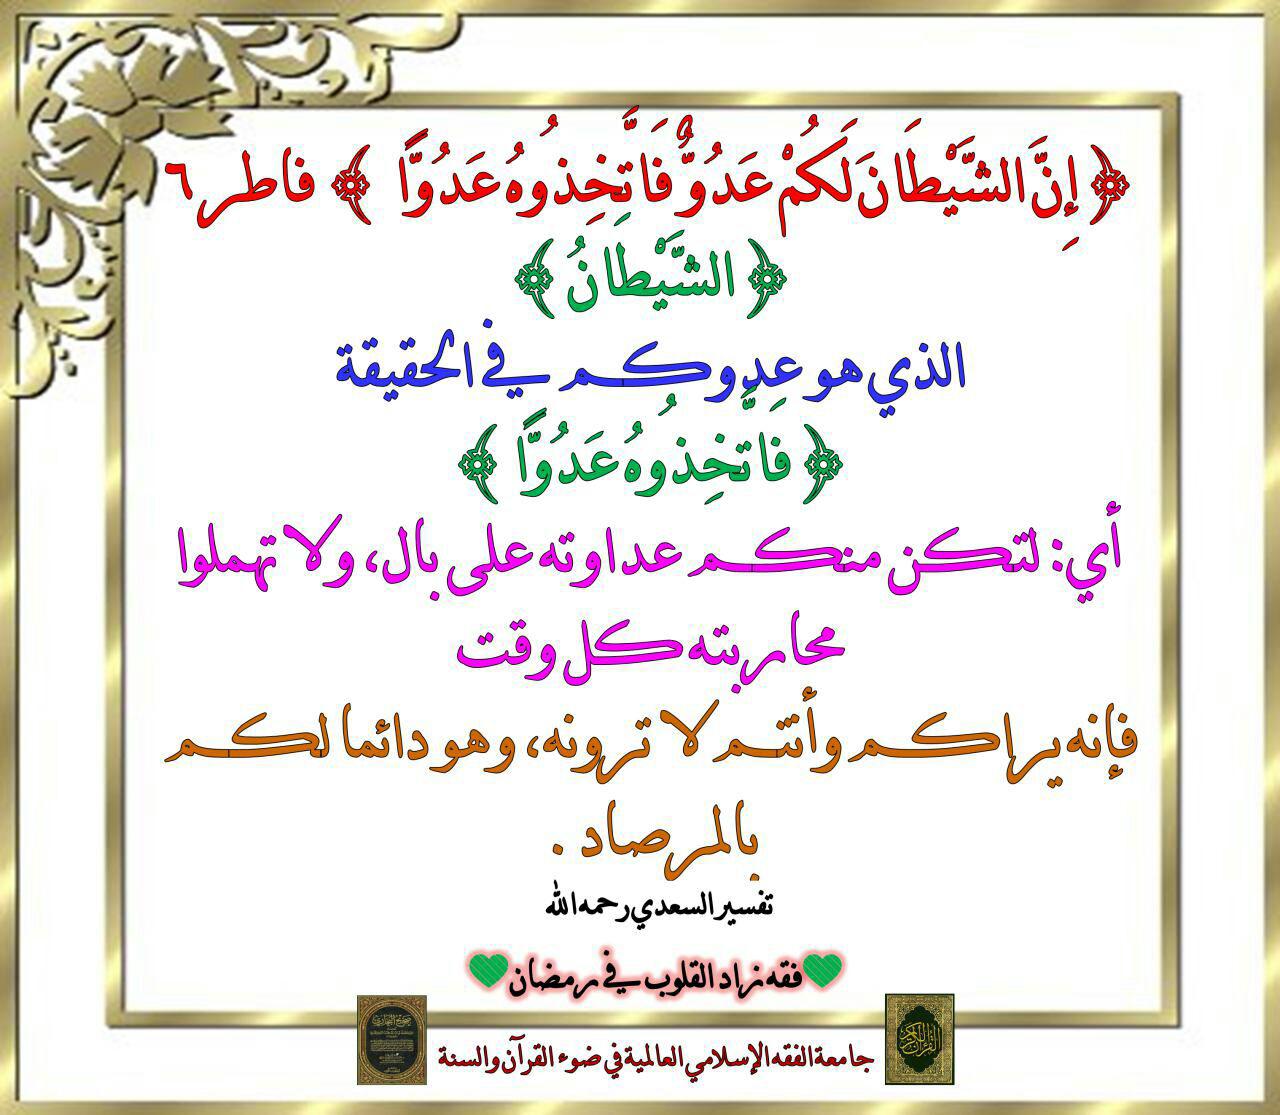 ﴿ إِنَّ الشَّيْطَانَ لَكُمْ عَدُوٌّ فَاتَّخِذُوهُ عَدُوًّا ﴾ فاطر ٦
﴿ الشَّيْطَانُ ﴾
الذي هو عدوكم في الحقيقة
﴿ فَاتَّخِذُوهُ عَدُوًّا ﴾
أي: لتكن منكم عداوته على بال، ولا تهملوا
محاربته كل وقت
فإنه يراكم وأنتم لا ترونه، وهو دائما لكم
بالمرصاد .
تفسير السعدي رحمه الله
💚فقه زاد القلوب في رمضان💚
جامعة الفقه الإسلامي العالمية في ضوء القرآن والسنة
صحيح البخاري
القرآن الكريم